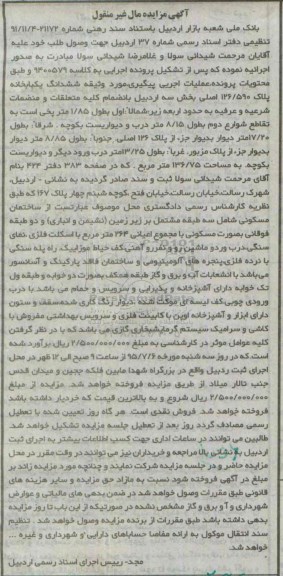 آگهی مزایده مال غیر منقول
بانک ملی شعبه بازار اردبیل باستناد سند رهنی شماره ۲۱۱۷۲-۹۱/۱۱/۳
تنظیمی دفتر اسناد رسمی شماره ۳۷ اردبیل جهت وصول طلب خود علیه
آقایان مرحمت شیدائی سولا و غلامرضا شیدائی سولا مبادرت به صدور
اجرائیه نموده که پس از تشکیل پرونده اجرایی به کلاسه ۹۴۰۰۵۷۹ و طبق
محتویات پرونده عملیات اجرایی پیگیری، مورد وثیقه ششدانگ یکبابخانه
پلاک ۱۲۶/۵۹۰ اصلی بخش سه اردبیل بانضمام کلیه متعلقات و منضمات
شرعیه و عرفیه به حدود اربعه زیر: شمالاً: اول بطول ۱/۸۵ متر پخی است به
تقاطع شوارع دوم بطول ۸/۱۵ متر درب و دیواریست بکوچه. شرقاً: بطول
۱۷/۲۰ متر دیوار بدیوار جزء از پلاک ۱۲۶ اصلی. جنوباً: بطول ۸/۸۵ متر دیوار
بدیوار جزء از پلاک مزبور. غرباً: بطول ۱۳/۲۵ متر درب ورود دیگر و دیواریست
بکوچه. به مساحت ۱۳۶/۷۵ متر مربع. که در صفحه ۳۸۳ دفتر ۴۲۳ بنام
آقای مرحمت شیدائی سولا ثبت و سند صادر گردیده به نشانی - اردبیل-
شهرک رسالت خیابان رسالت خیابان فتح کوچه شبنم چهار پلاک ۱۶۷ که طبق
نظریه کارشناس رسمی دادگستری محل موصوف عبارتست از ساختمان
مسکونی شامل سه طبقه مشتمل بر زیر زمین (نشیمن و انباری) و دو طبقه
فوقانی بصورت مسکونی با مجموع اعیانی ۲۶۳ متر مربع با اسکلت فلزی، نمای
سنگی، درب وردو ماشین رو و نفررو آهنی، کف حیاط موزاییک، راه پله سنگی
با نرده فلزی، پنجره های آلومینیومی و ساختمان فاقد پارکینگ و آسانسور
می باشد با انشعابات آب و برق و گاز طبقه همکف بصورت دو خوابه و طبقه ول
تک خوابه دارای آشپزخانه و پذیرایی و سرویس و حمام می باشد با درب
ورودی چوبی، کف لیسه ای موکت شده، دیوار رنگ کاری شده، سقف و ستون
دارای ابزار و آشپزخانه اوپن با کابینت فلزی و سرویس بهداشتی مفروش با
کاشی و سرامیک سیستم گرمایشبخاری گازی می باشد که با در نظر گرفتن
کلیه عوامل موثر در کارشناسی به مبلغ ۲/۵۰۰/۰۰۰/۰۰۰ ریال برآورد شده
است، که در روز سه شنبه مورخه ۹۵/۷/۶ از ساعت ۹ صبح الی ۱۲ ظهر در محل
اجرای ثبت ردبیل واقع در بزرگراه شهدا مابین فلکه ججین و میدان قدس
جنب تالار میلاد از طریق مزایده فروخته خواهد شد. مزایده از مبلغ
۲/۵۰۰/۰۰۰/۰۰۰ ریال شروع و به بالاترین قیمت که خریدار داشته باشد
فروخته خواهد شد. فروش نقدی است. هر گاه روز تعیین شده با تعطیل
رسمی مصادف گردد روز بعد از تعطیل جلسه مزایده تشکیل خواهد شد.
طالبین می توانند در ساعات اداری جهت کسب اطلاعات بیشتر به اجرای ثبت
اردبیل به نشانی بالا مراجعه و خریداران نیز می توانند در وقت مقرر در محل
مزایده حاضر و در جلسه مزایده شرکت نمایند و چنانچه مورد مزایده زائد بر
مبلغ در آگهی فروخته شود نسبت به مازاد حق مزایده و سایر هزینه های
قانونی طبق مقررات وصول خواهد شد در ضمن بدهی های مالیاتی و عوارض
شهرداری و آب و برق و گاز مشخص نشده در صورتیکه از این باب تا روز مزایده
بدهی داشته باشد طبق مقررات از برنده مزایده وصول خواهد شد. تنظیم
سند انتقال موکول به ارائه مفاصا حسابهای دارایی و شهرداری و غیره ...
خواهد شد.
مجد- رییس اجرای اسناد رسمی اردبیل